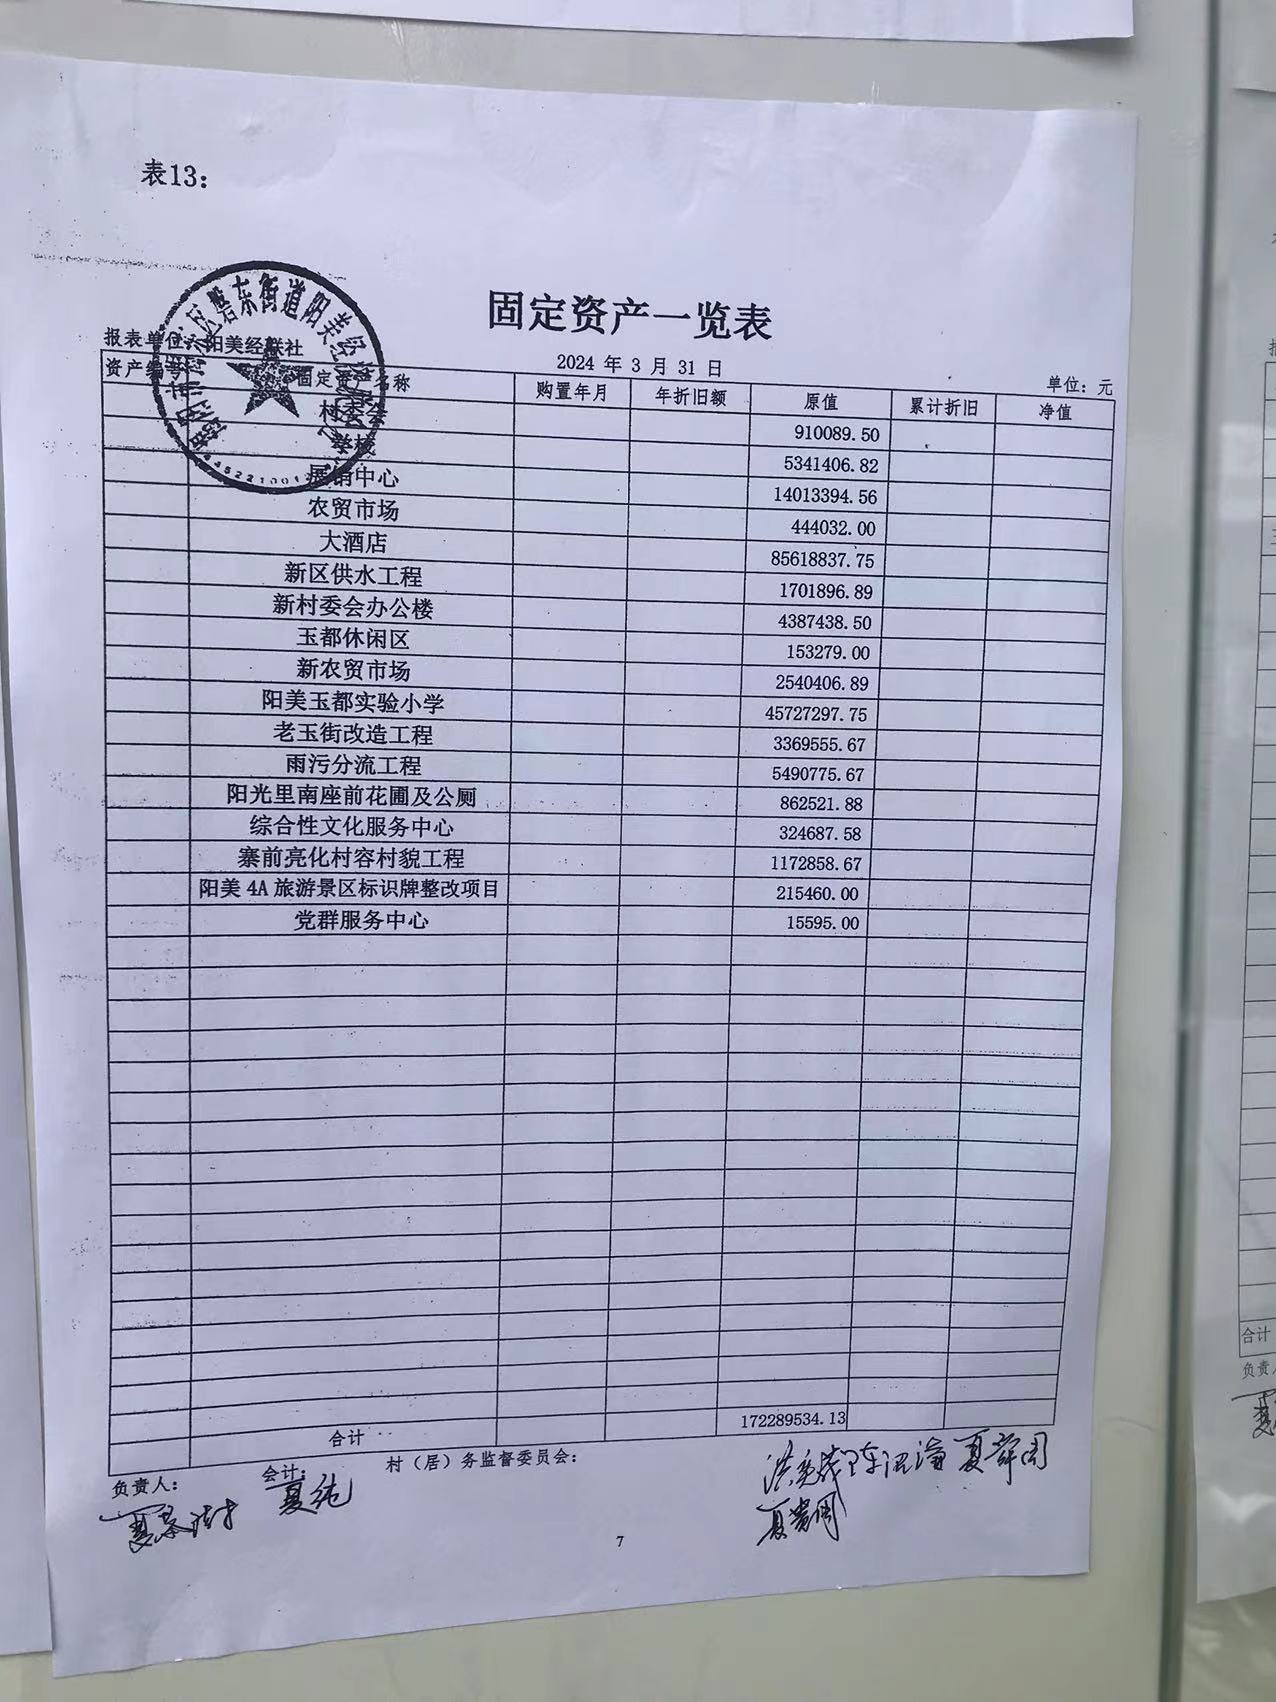 表13:
固定资产一览表
报表单位: 阳美经联社
2024 年 3 月 31 日
单位: 元
资产编号 固定资产名称 购置年月 年折旧额 原值 累计折旧 净值
村委会 910089.50
学校 5341406.82
展销中心 14013394.56
农贸市场 444032.00
大酒店 85618837.75
新区供水工程 1701896.89
新村委会办公楼 4387438.50
玉都休闲区 153279.00
新农贸市场 2540406.89
阳美玉都实验小学 45727297.75
老玉街改造工程 3369555.67
雨污分流工程 5490775.67
阳光里南座前花圃及公厕 862521.88
综合性文化服务中心 324687.58
寨前亮化村容村貌工程 1172858.67
阳美 4A 旅游景区标识牌整改项目 215460.00
党群服务中心 15595.00
合计 172289534.13
负责人: 会计: 夏纯 村（居）务监督委员会:
7
区磐东街道阳美经
合计
负责